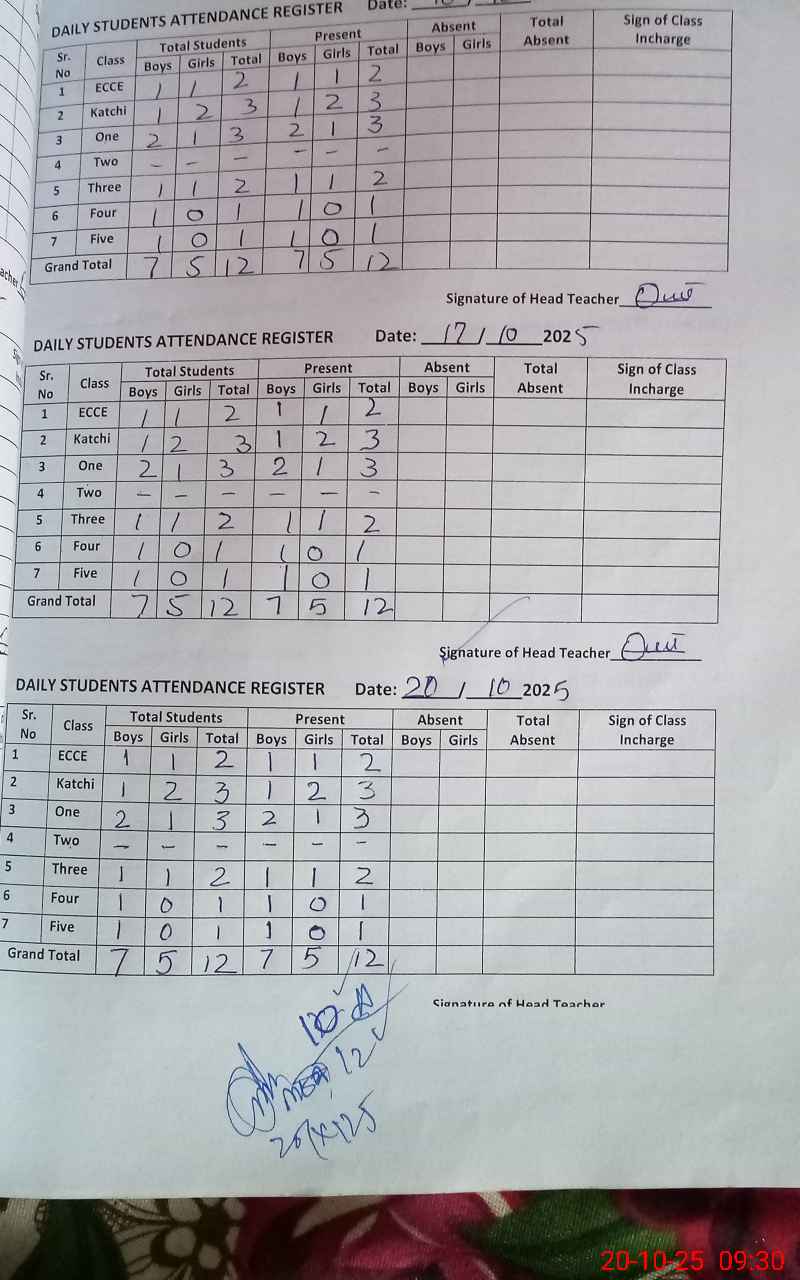 DAILY STUDENTS ATTENDANCE REGISTER Date:
Sr. No Class Total Students Present Absent Total Absent Sign of Class Incharge
Boys Girls Total Boys Girls Total Boys Girls
1 ECCE 1 1 2 1 1 2
2 Katchi 1 2 3 1 2 3
3 One 2 1 3 2 1 3
4 Two - - - - - -
5 Three 1 1 2 1 1 2
6 Four 1 0 1 1 0 1
7 Five 1 0 1 1 0 1
Grand Total 7 5 12 7 5 12
Signature of Head Teacher
DAILY STUDENTS ATTENDANCE REGISTER Date: 17/10 2025
Sr. No Class Total Students Present Absent Total Absent Sign of Class Incharge
Boys Girls Total Boys Girls Total Boys Girls
1 ECCE 1 1 2 1 1 2
2 Katchi 1 2 3 1 2 3
3 One 2 1 3 2 1 3
4 Two - - - - - -
5 Three 1 1 2 1 1 2
6 Four 1 0 1 1 0 1
7 Five 1 0 1 1 0 1
Grand Total 7 5 12 7 5 12
Signature of Head Teacher
DAILY STUDENTS ATTENDANCE REGISTER Date: 20/10 2025
Sr. No Class Total Students Present Absent Total Absent Sign of Class Incharge
Boys Girls Total Boys Girls Total Boys Girls
1 ECCE 1 1 2 1 1 2
2 Katchi 1 2 3 1 2 3
3 One 2 1 3 2 1 3
4 Two - - - - - -
5 Three 1 1 2 1 1 2
6 Four 1 0 1 1 0 1
7 Five 1 0 1 1 0 1
Grand Total 7 5 12 7 5 12
Signature of Head Teacher
MEA 12
20/X/25
20-10-25 09:30